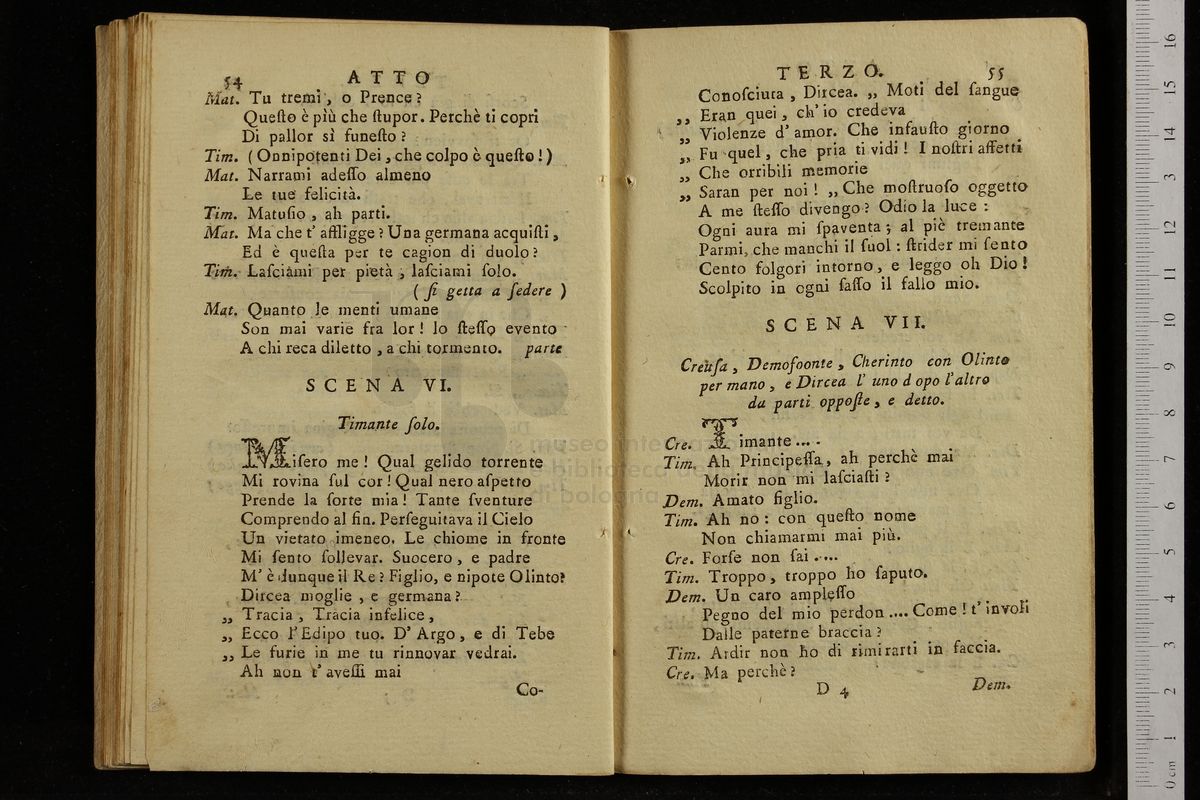 54 ATTO
Mat. Tu tremi, o Prence?
Queſto è più che ſtupor. Perchè ti copri
Di pallor sì funeſto?
Tim. (Onnipotenti Dei, che colpo è queſto!)
Mat. Narrami adeſſo almeno
Le tue felicità.
Tim. Matuſio, ah parti.
Mat. Ma che t' affligge? Una germana acquiſti,
Ed è queſta per te cagion di duolo?
Tim. Laſciami per pietà, laſciami ſolo.
(ſi getta a ſedere)
Mat. Quanto le menti umane
Son mai varie fra lor! lo ſteſſo evento
A chi reca diletto, a chi tormento. parte
SCENA VI.
Timante ſolo.
Miſero me! Qual gelido torrente
Mi rovina ſul cor! Qual nero aſpetto
Prende la ſorte mia! Tante ſventure
Comprendo al fin. Perſeguitava il Cielo
Un vietato imeneo. Le chiome in fronte
Mi ſento ſollevar. Suocero, e padre
M' è dunque il Re? Figlio, e nipote Olinto?
Dircea moglie, e germana?
„ Tracia, Tracia infelice,
„ Ecco l' Edipo tuo. D' Argo, e di Tebe
„ Le furie in me tu rinnovar vedrai.
Ah non t' aveſſi mai
Co-
TERZO. 55
Conoſciuta, Dircea. „ Moti del ſangue
„ Eran quei, ch' io credeva
„ Violenze d' amor. Che infauſto giorno
„ Fu quel, che pria ti vidi! I noſtri affetti
„ Che orribili memorie
„ Saran per noi! „ Che moſtruoſo oggetto
A me ſteſſo divengo? Odio la luce:
Ogni aura mi ſpaventa; al piè tremante
Parmi, che manchi il ſuol: ſtrider mi ſento
Cento folgori intorno, e leggo oh Dio!
Scolpito in ogni ſaſſo il fallo mio.
SCENA VII.
Creùſa, Demofoonte, Cherinto con Olinto
per mano, e Dircea l' uno d opo l'altro
da parti oppoſte, e detto.
Cre. Timante....
Tim. Ah Principeſſa, ah perchè mai
Morir non mi laſciaſti?
Dem. Amato figlio.
Tim. Ah no: con queſto nome
Non chiamarmi mai più.
Cre. Forſe non ſai.....
Tim. Troppo, troppo ho ſaputo.
Dem. Un caro ampleſſo
Pegno del mio perdon.... Come! t' involi
Dalle paterne braccia?
Tim. Ardir non ho di rimirarti in faccia.
Cre. Ma perchè?
D 4 Dem.
museo internazionale
biblioteca della musica
di bologna
0 cm 1 2 3 4 5 6 7 8 9 10 11 12 13 14 15 16